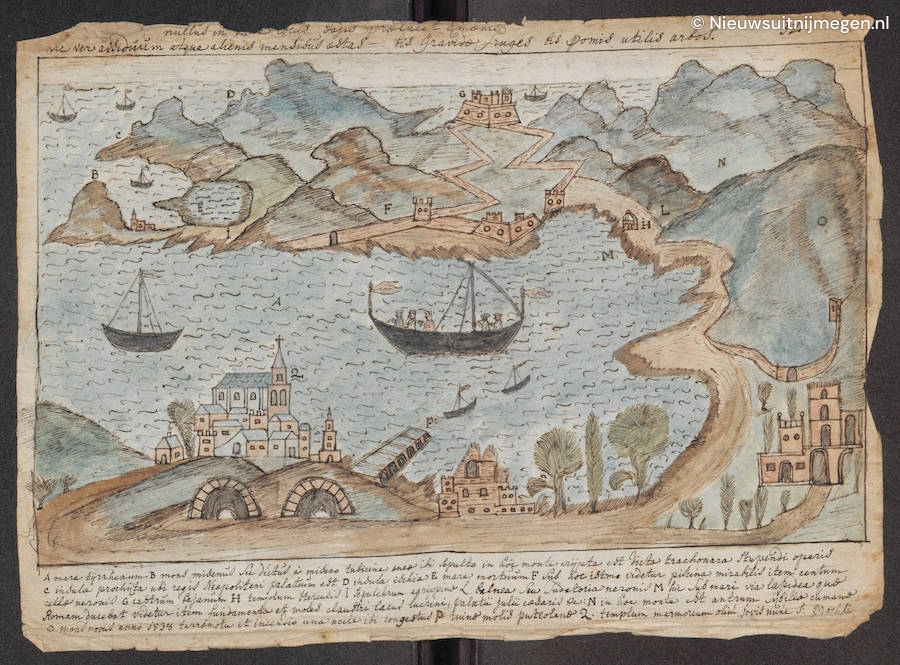 © Nieuwsuitnijmegen.nl
nullus in
ne ver assiduum atque alienis mensibus estas Bis gravidæ fruges Bis pomis utilis arbos.
G
D
C
B
N
E
F
L
H
I
M
A
Q
P.
A mare tyrrhenum B mons misenus sic dictus a miseno tubicine eneæ ibi sepulto in hoc monte crypta est dicta trachonara stupendi operis
C insula prochita ubi regis Neapolitani palatium est D insula ischia E mare mortuum F sub hoc istmo videtur piscina mirabilis item centum
cellæ neronis G castrum Bajanum H templum Herculis I sepulchrum agrippinæ L Balnea seu sudatoria neronis M hic sub mari via lapidea quæ
Romam ducebat videtur item fundamenta et moles claustri lacus lucrini, palatii julii cæsaris &c: N in hoc monte est antrum sybillæ cumanæ
O mons novus anno 1538 terremotu et incensio una nocte ibi congestus P ruinæ molis puteolanæ Q. templum marmoreum olim jovis nunc S.